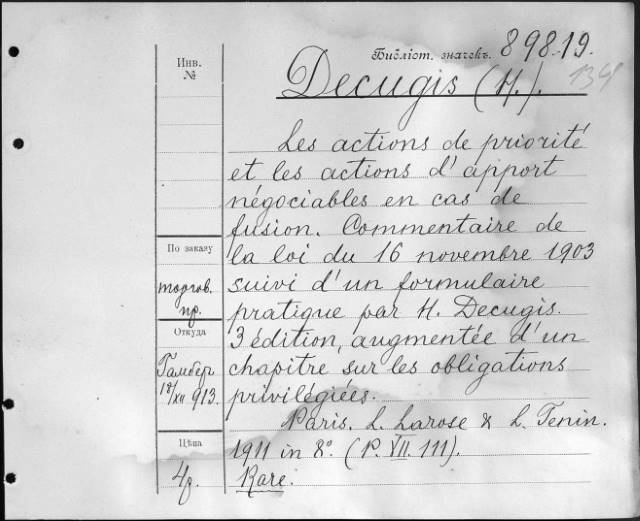 Библіот. значекъ. 898.19.
134
Инв.
№
Decugis (H.).
Les actions de priorité
et les actions d'apport
négociables en cas de
fusion. Commentaire de
la loi du 16 novembre 1903
suivi d'un formulaire
pratique par H. Decugis.
3 édition, augmentée d'un
chapitre sur les obligations
privilégiées.
Paris. L. Larose & L. Tenin.
1911 in 8º. (P. VII. 111).
Rare.
По заказу
торгов.
пр.
Откуда
Гамбер
18/XII 913.
Цѣна
4р.